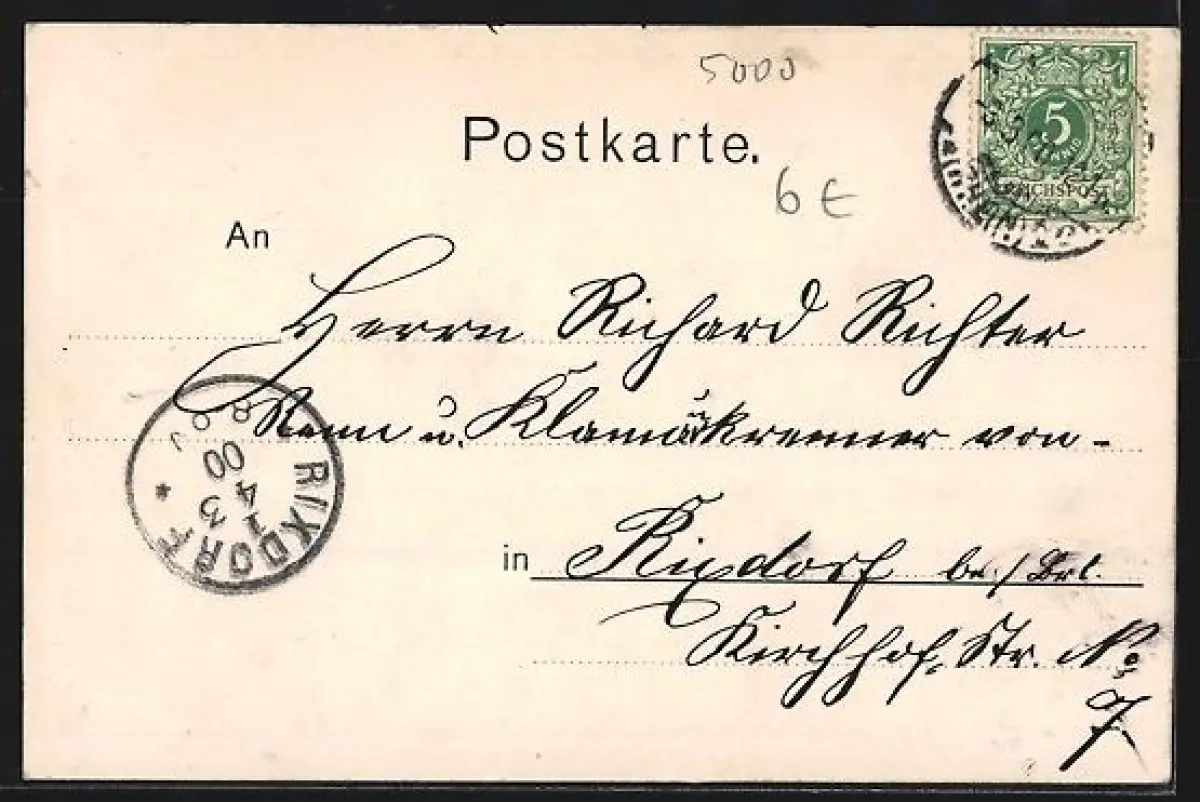 5000
Postkarte.
6 €
5
PFENNIG
REICHSPOST
An
Herrn Richard Richter
u. von-
in Rixdorf be./Brl.
Kirchhof. Str. No
7
RIXDORF
1 4 3
00
8 9 V
*